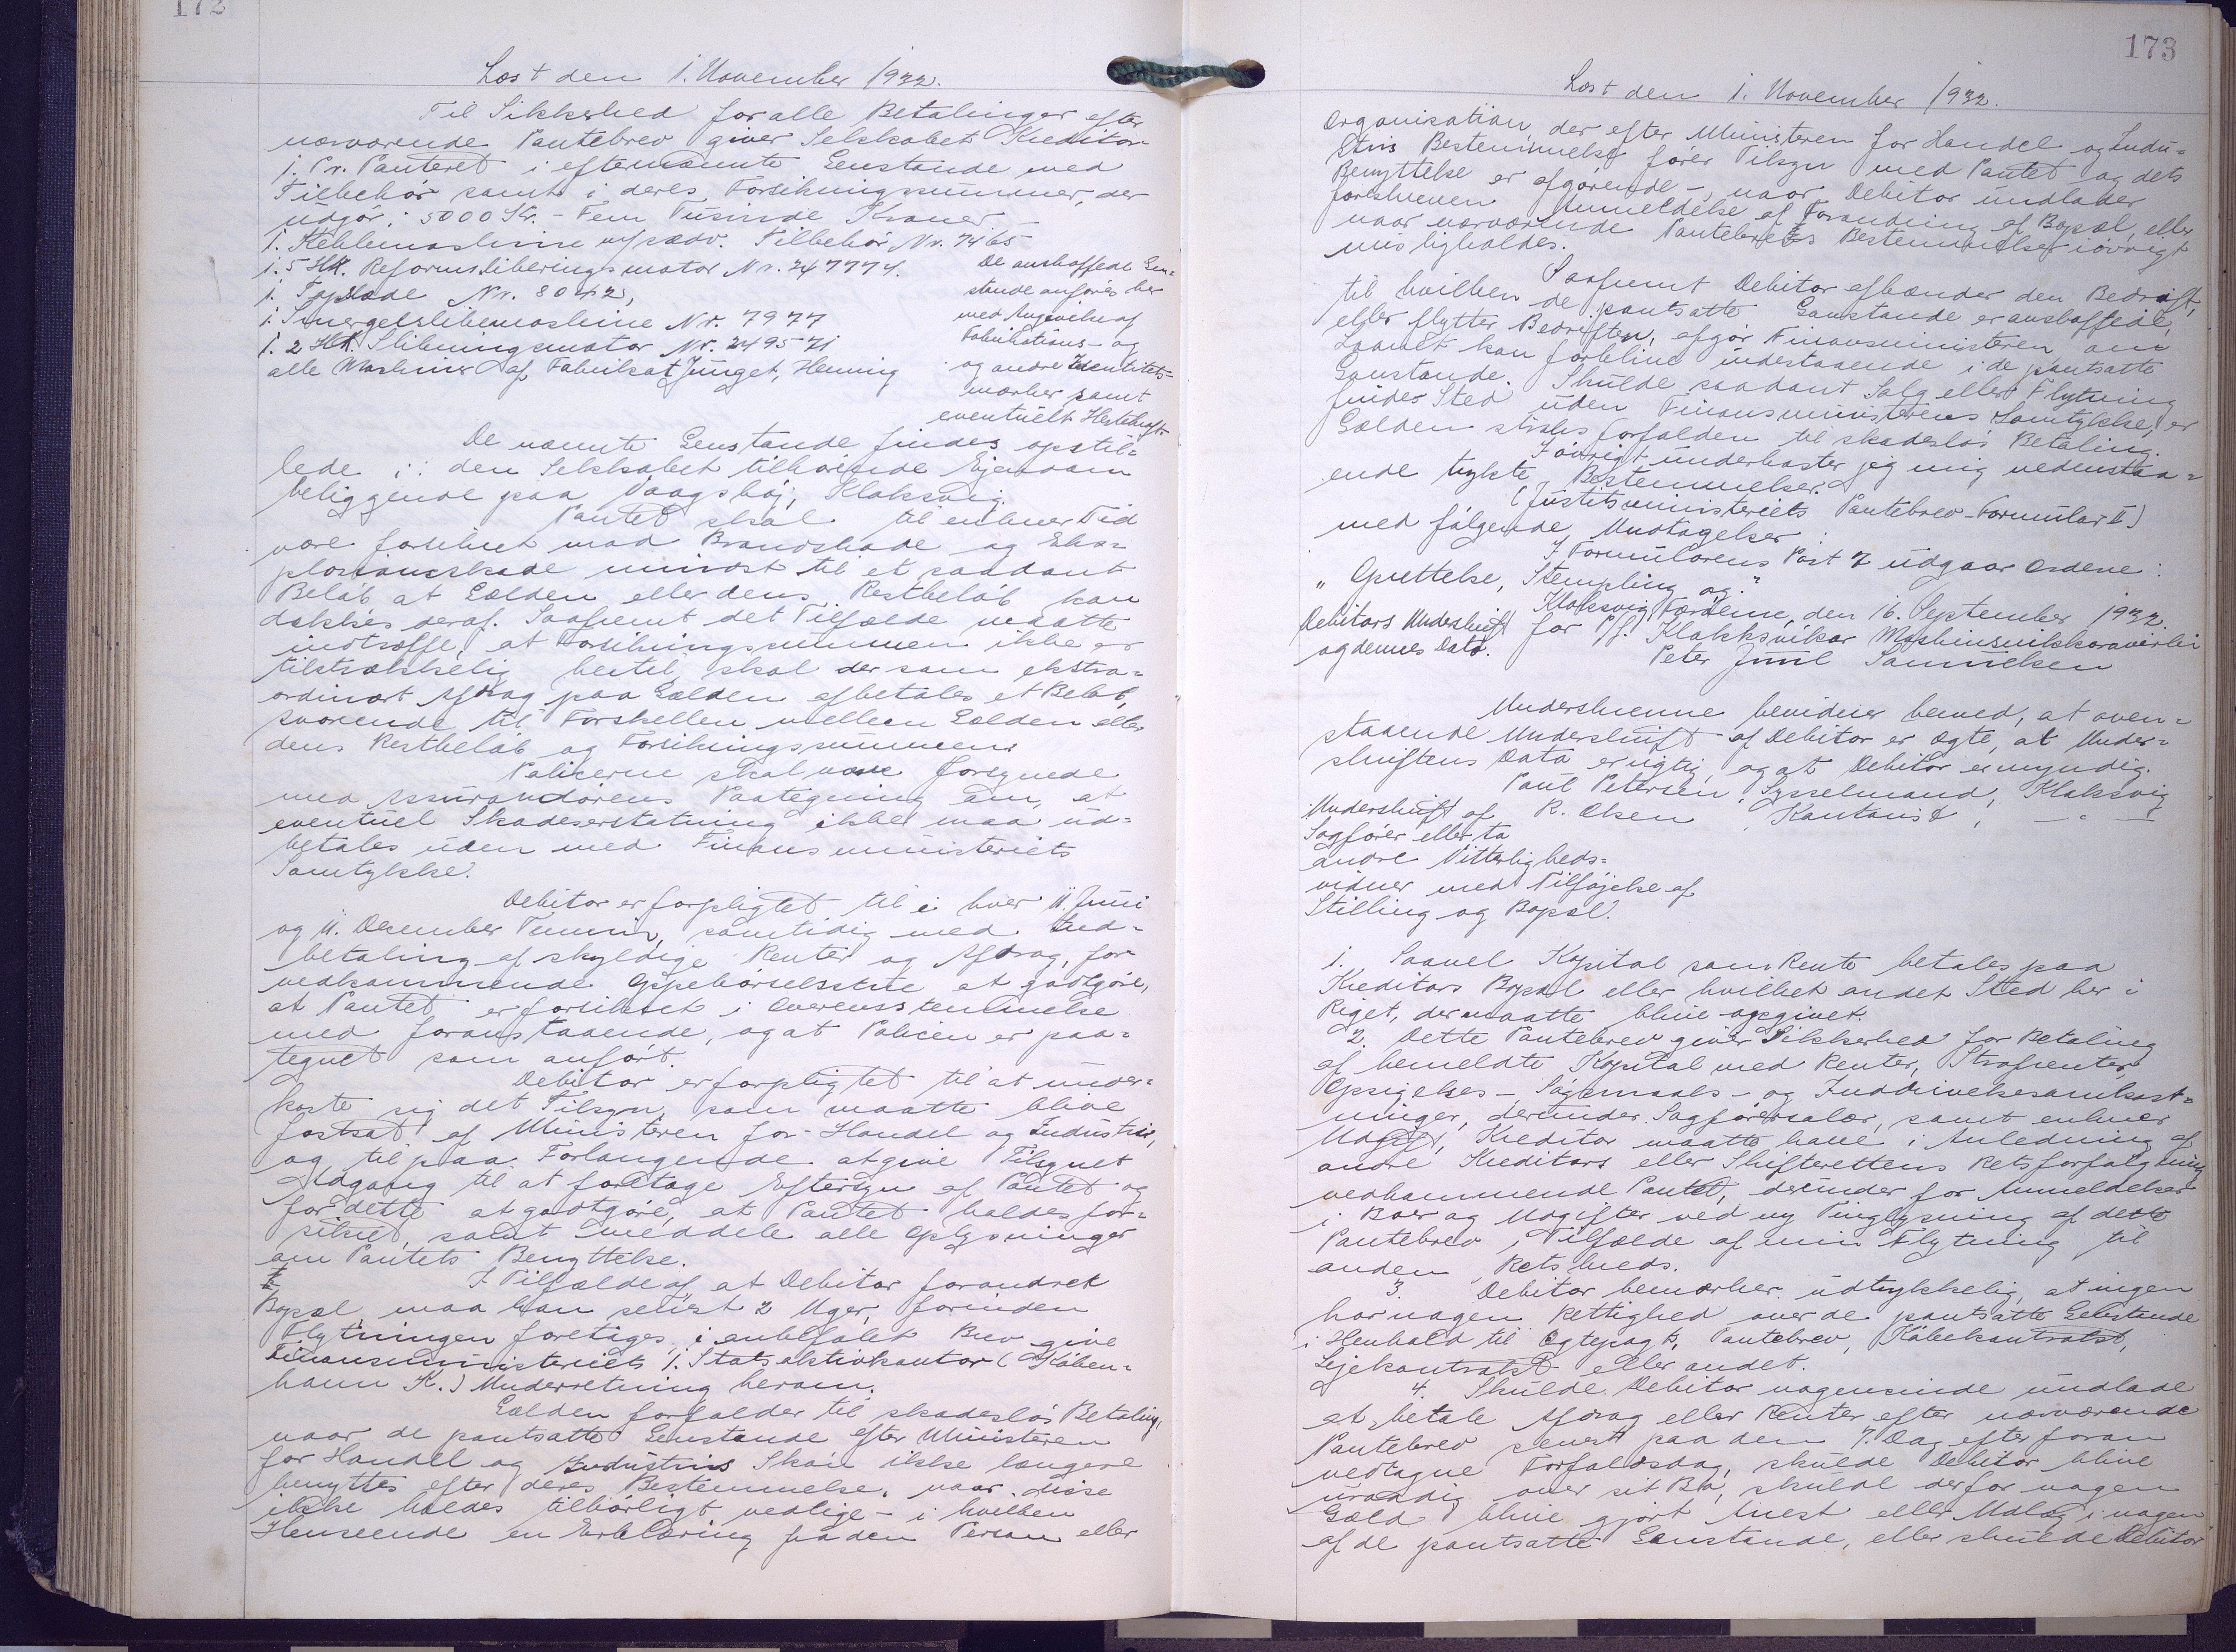 172
Læst den 1. November 1932.
Til Sikkerhed for alle Betalinger efter
nærværende Pantebrev giver Selskabet Kreditor
1. Pr. Panteret i efternævnte Genstande med
Tilbehør samt i deres Forsikringssummer, der
udgør: 5000 Kr. - Fem Tusinde Kroner -
1. Kehlemaskine m/ sædv. Tilbehør Nr. 7465
1. 5 HK. Reformslibningsmotor Nr. 247774.
1. Nr. 8042,
1. Smergelslibemaskine Nr. 7977
1. 2 HK. Slibningsmotor Nr. 249571
alle Maskiner af Fabrikat Junget, Henning
De anskaffede Gen=
stande anføres her
med Angivelse af
Fabrikations- og
og andre Identitets=
mærker samt
eventuelt Hestekraft
De nævnte Genstande findes opstil=
lede i: den Selskabet tilhørende Ejendom
beliggende paa Vaagshøj, Klaksvig.
Pantet skal til enhver Tid
være forsikret mod Brandskade og Eks=
plosionsskade mindst til et saadant
Beløb at Gælden eller dens Restbeløb kan
dækkes deraf. Saafremt det Tilfælde maatte
indtræffe, at Forsikringssummen ikke er
tilstrækkelig hertil, skal der som ekstra=
ordinært Afdrag paa Gælden afbetales et Beløb,
svarende til Forskellen mellem Gælden eller
dens Restbeløb og Forsikringssummen.
Policerne skal være forsynede
med Assurandørens Paategning om, at
eventuel Skadeserstatning ikke maa ud=
betales uden med Finansministeriets
Samtykke.
Debitor er forpligtet til i hver 11. Juni
og 11. December Termin, samtidig med Ind=
betaling af skyldige Renter og Afdrag, for
vedkommende Oppebørselsstue at godtgøre,
at Pantet er forsikret i Overensstemmelse
med foranstaaende, og at Policen er paa=
tegnet som anført.
Debitor er forpligtet til at under=
kaste sig det Tilsyn, som maatte blive
fastsat af Ministeren for Handel og Industri,
og til paa Forlangende at give Tilsynet
Adgang til at foretage Eftersyn af Pantet og
for dette at godtgøre, at Pantet holdes for=
sikret, samt meddele alle Oplysninger
om Pantets Benyttelse.
I Tilfælde af, at Debitor forandrer
Bopæl, maa han senest 2 Uger, forinden
Flytningen foretages, i anbefalet Brev give
Finansministeriets 1. Statsaktivkontor (Køben=
havn K.) Underretning herom.
Gælden forfalder til skadesløs Betaling,
naar de pantsatte Genstande efter Ministeren
for Handel og Industris Skøn ikke længere
benyttes efter deres Bestemmelse, naar disse
ikke holdes tilbørligt vedlige - i hvilken
Henseende en Erklæring fra den Person eller
173
Læst den 1. November 1932.
Organisation, der efter Ministeren for Handel og Indu=
stris Bestemmelse fører Tilsyn med Pantet og dets
Benyttelse er afgørende -, naar Debitor undlader
foreskreven Anmeldelse af Forandring af Bopæl, eller
naar nærværende Pantebrevs Bestemmelser iøvrigt
misligholdes.
Saafremt Debitor afhænder den Bedrift,
til hvilken de pantsatte Genstande er anskaffede,
eller flytter Bedriften, afgør Finansministeren om
Laanet kan forblive indestaaende i de pantsatte
Genstande. Skulde saadant Salg eller Flytning
finde Sted uden Finansministerens Samtykke, er
Gælden straks forfalden til skadesløs Betaling.
Iøvrigt underkaster jeg mig nedenstaa=
ende trykte Bestemmelser.
(Justitsministeriets Pantebrev-Formular II)
med følgende Undtagelser:
I Formularens Post 7 udgaar Ordene:
"Oprettelse, Stempling og."
Klaksvig, Færøerne, den 16. September 1932.
Debitors Underskrift for P/f. Klakksvikar Maskinsnikkaravirki
og dennes Dato. Peter Juul Samuelsen
Underskrevne bevidner herved, at oven=
staaende Underskrift af Debitor er ægte, at Under=
skriftens Data er rigtig, og at Debitor er myndig.
Poul Petersen, Sysselmand, Klaksvig
Underskrift af R. Olsen, Kontorist, — " —
Sagfører eller to
andre Vitterligheds=
vidner med Tilføjelse af
Stilling og Bopæl.
1. Saavel Kapital som Rente betales paa
Kreditors Bopæl eller hvilket andet Sted her i
Riget, der maatte blive opgivet.
2. Dette Pantebrev giver Sikkerhed for Betaling
af bemeldte Kapital med Renter, Strafrenter,
Opsigelses-, Søgsmaals- og Inddrivelsesomkost=
ninger, derunder Sagførersalær, samt enhver
Udgift, Kreditor maatte have i Anledning af
andre Kreditors eller Skifterettens Retsforfølgning
vedkommende Pantet, derunder for Anmeldelser
i Boer og Udgifter ved ny Tinglysning af dette
Pantebrev i Tilfælde af min Flytning til
anden Retskreds.
3. Debitor bemærker udtrykkelig, at ingen
har nogen Rettighed over de pantsatte Genstande
i Henhold til Ægtepagt, Pantebrev, Købekontrakt,
Lejekontrakt eller andet.
4. Skulde Debitor nogensinde undlade
at betale Afdrag eller Renter efter nærværende
Pantebrev senest paa den 7. Dag efter foran
vedtagne Forfaldsdag, skulde Debitor blive
uraadig over sit Bo, skulde der for nogen
Gæld blive gjort Arrest eller Udlæg i nogen
af de pantsatte Genstande, eller skulde Debitor